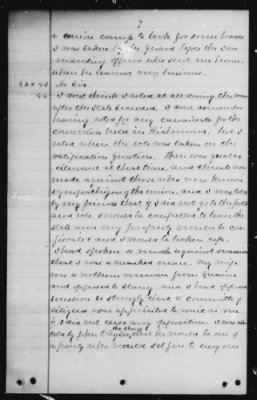 7
a union camp to look for some horses
I was taken by the guard before the com-
manding officer who sent me home
when he learned my business.
42 & 43 No Sir.
44 I don't think I voted at all during the war
after the State seceded. I don't remember
having voted for any candidate for the
convention held in Richmond, but I
voted when the vote was taken on the
ratification question. There was great
excitement at that time, and threats were
made against those who were known
sympathizing the union, and I was told
by my friends that if I did not go to the polls
and vote I would be compelled to leave the
state and my property would be con-
fiscated and I would be broken up.
I had spoken so much against secession
that I was a marked man. My wife
was a northern woman from
and opposed to slavery and I had opposed
secession so strongly that a committee of
citizens was appointed to wait on me
if I did not cease my opposition. I was also
told by John the Sheriff that he would be one of
a party who would set fire to my one